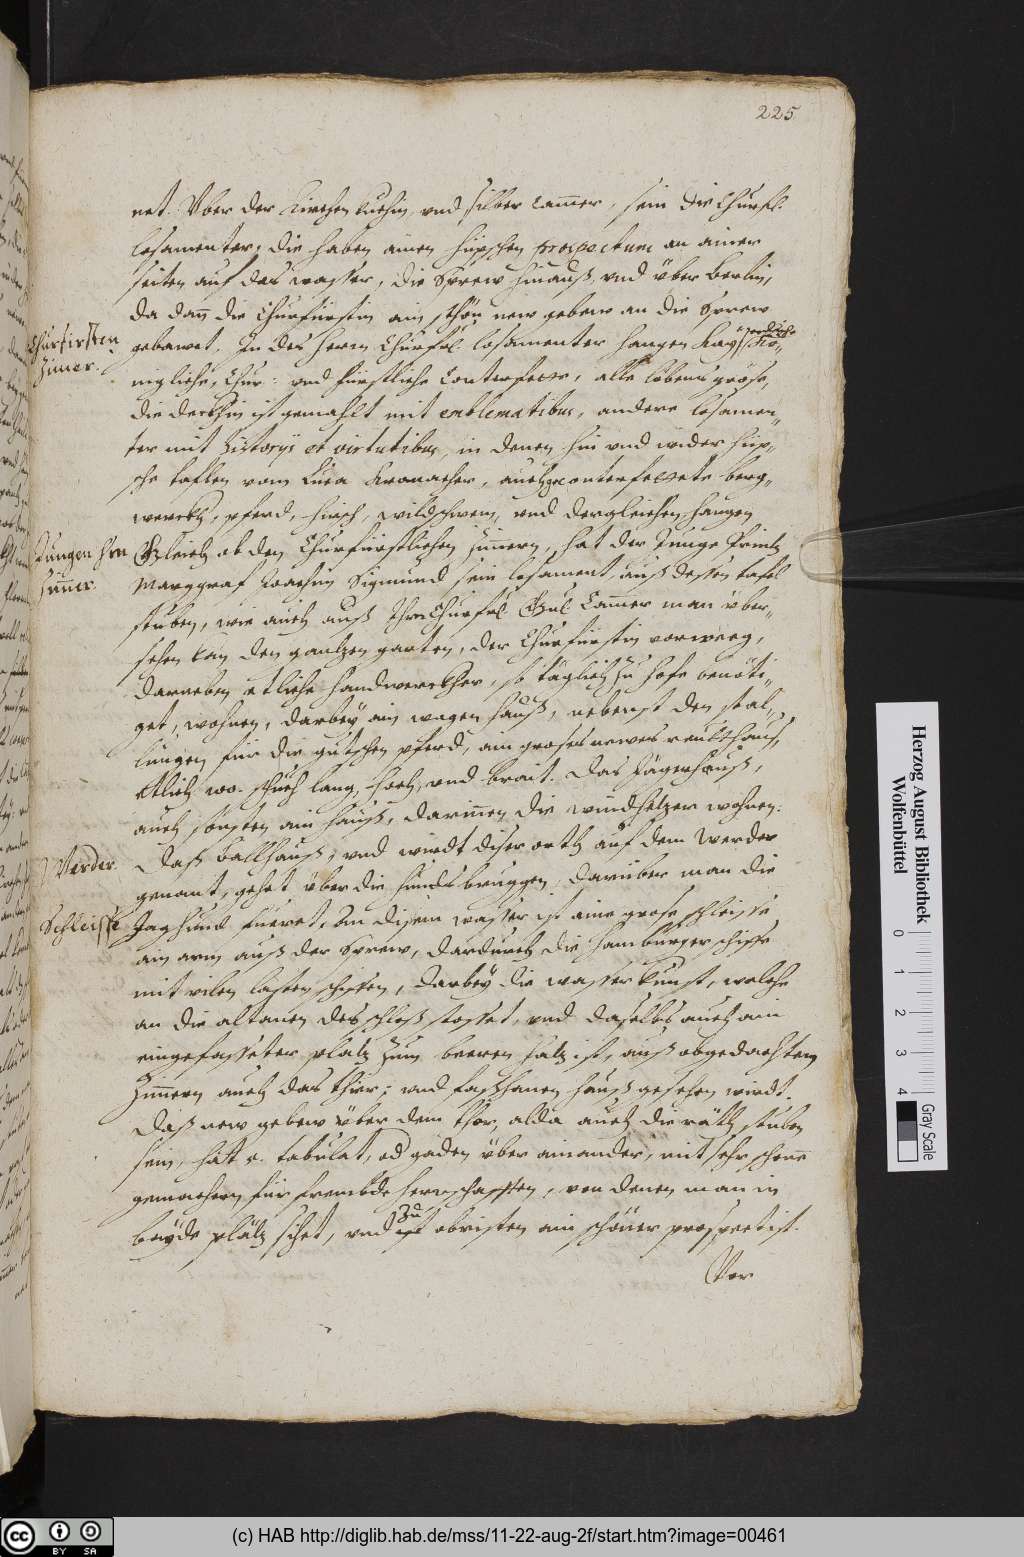 225
net. Vber der Kirchen kuchin, vnd silber camer, sein die Churfl.
losamenter, die haben ainen hüpschen prospectum an ainer
seiten auf das wasser, die Sprew hinauß, vnd über Berlin,
da dan die Churfürstin ain schön new gebew an die Sprew
Churfirsten
Zimer.
gebawet. In des herrn Churfrl. losamenter hangen Kay: Kö-
nigliche, Chur: vnd fürstliche Conterfecte, alle lebens größe,
die deckhin ist gemahlt mit emblematibus, andere losamen-
ter mit Historijs et virtutibus, in denen hin vnd wider hüp-
sche taflen vom Luca Kronacher, auch conterfecete berg-
werckh, pferd, hirsch, wildschwein, vnd dergleichen hangen
Jungen hrn
Zimer.
Gleich ob den Churfürstlichen Zimern, hat der Junge Printz
Marggraf Joachim Sigmund sein losament, auß dessen tafel
stuben, wie auch auß Ihr Churfrl. Gul. Camer man über-
sehen kan den gantzen garten, der Churfürstin vorwerg,
darneben etliche handwerckher, so täglich zu hofe benöti-
get, wohnen, darbey ain wagen hauß, nebenst den stal-
lungen für die gutschen pferd, ain groses newes reitthaus,
etlich 100. schuch lang, hoch, vnd brait. Das Jägerhauß,
auch sonsten ain hauß, darinen die windhetzer wohnen.
Werder
Daß ballhauß, vnd wirdt diser orth auf dem Werder
genant, gehet über die hundsbruggen, darüber man die
Schleisse
Jaghund füeret, An disem wasser ist aine grose schleisse
ain arm auß der Sprew, dardurch die Hamburger schiffe
mit vilen lasten schiffen, darbey die wasserkunst, welche
an die altanen des schloß stosset, vnd daselbs auch ain
eingefasseter platz zum beeren hatz ist, auß obgedachten
Zimern auch das thier: vnd fasshanen hauß gesehen wirdt.
Daß new gebew über dem thor, alda auch die räth stuben
sein, hatt 2. tabulat, od gäden über ainander, mit sehr schöne
gemachern für frembde herrschafften, von denen man in
beyde plätz sihet, vnd zu obristen ain schöner prospect ist.
Vor
Herzog August Bibliothek
Wolfenbüttel
0 1 2 3 4
Gray Scale
(c) HAB http://diglib.hab.de/mss/11-22-aug-2f/start.htm?image=00461
cc BY SA